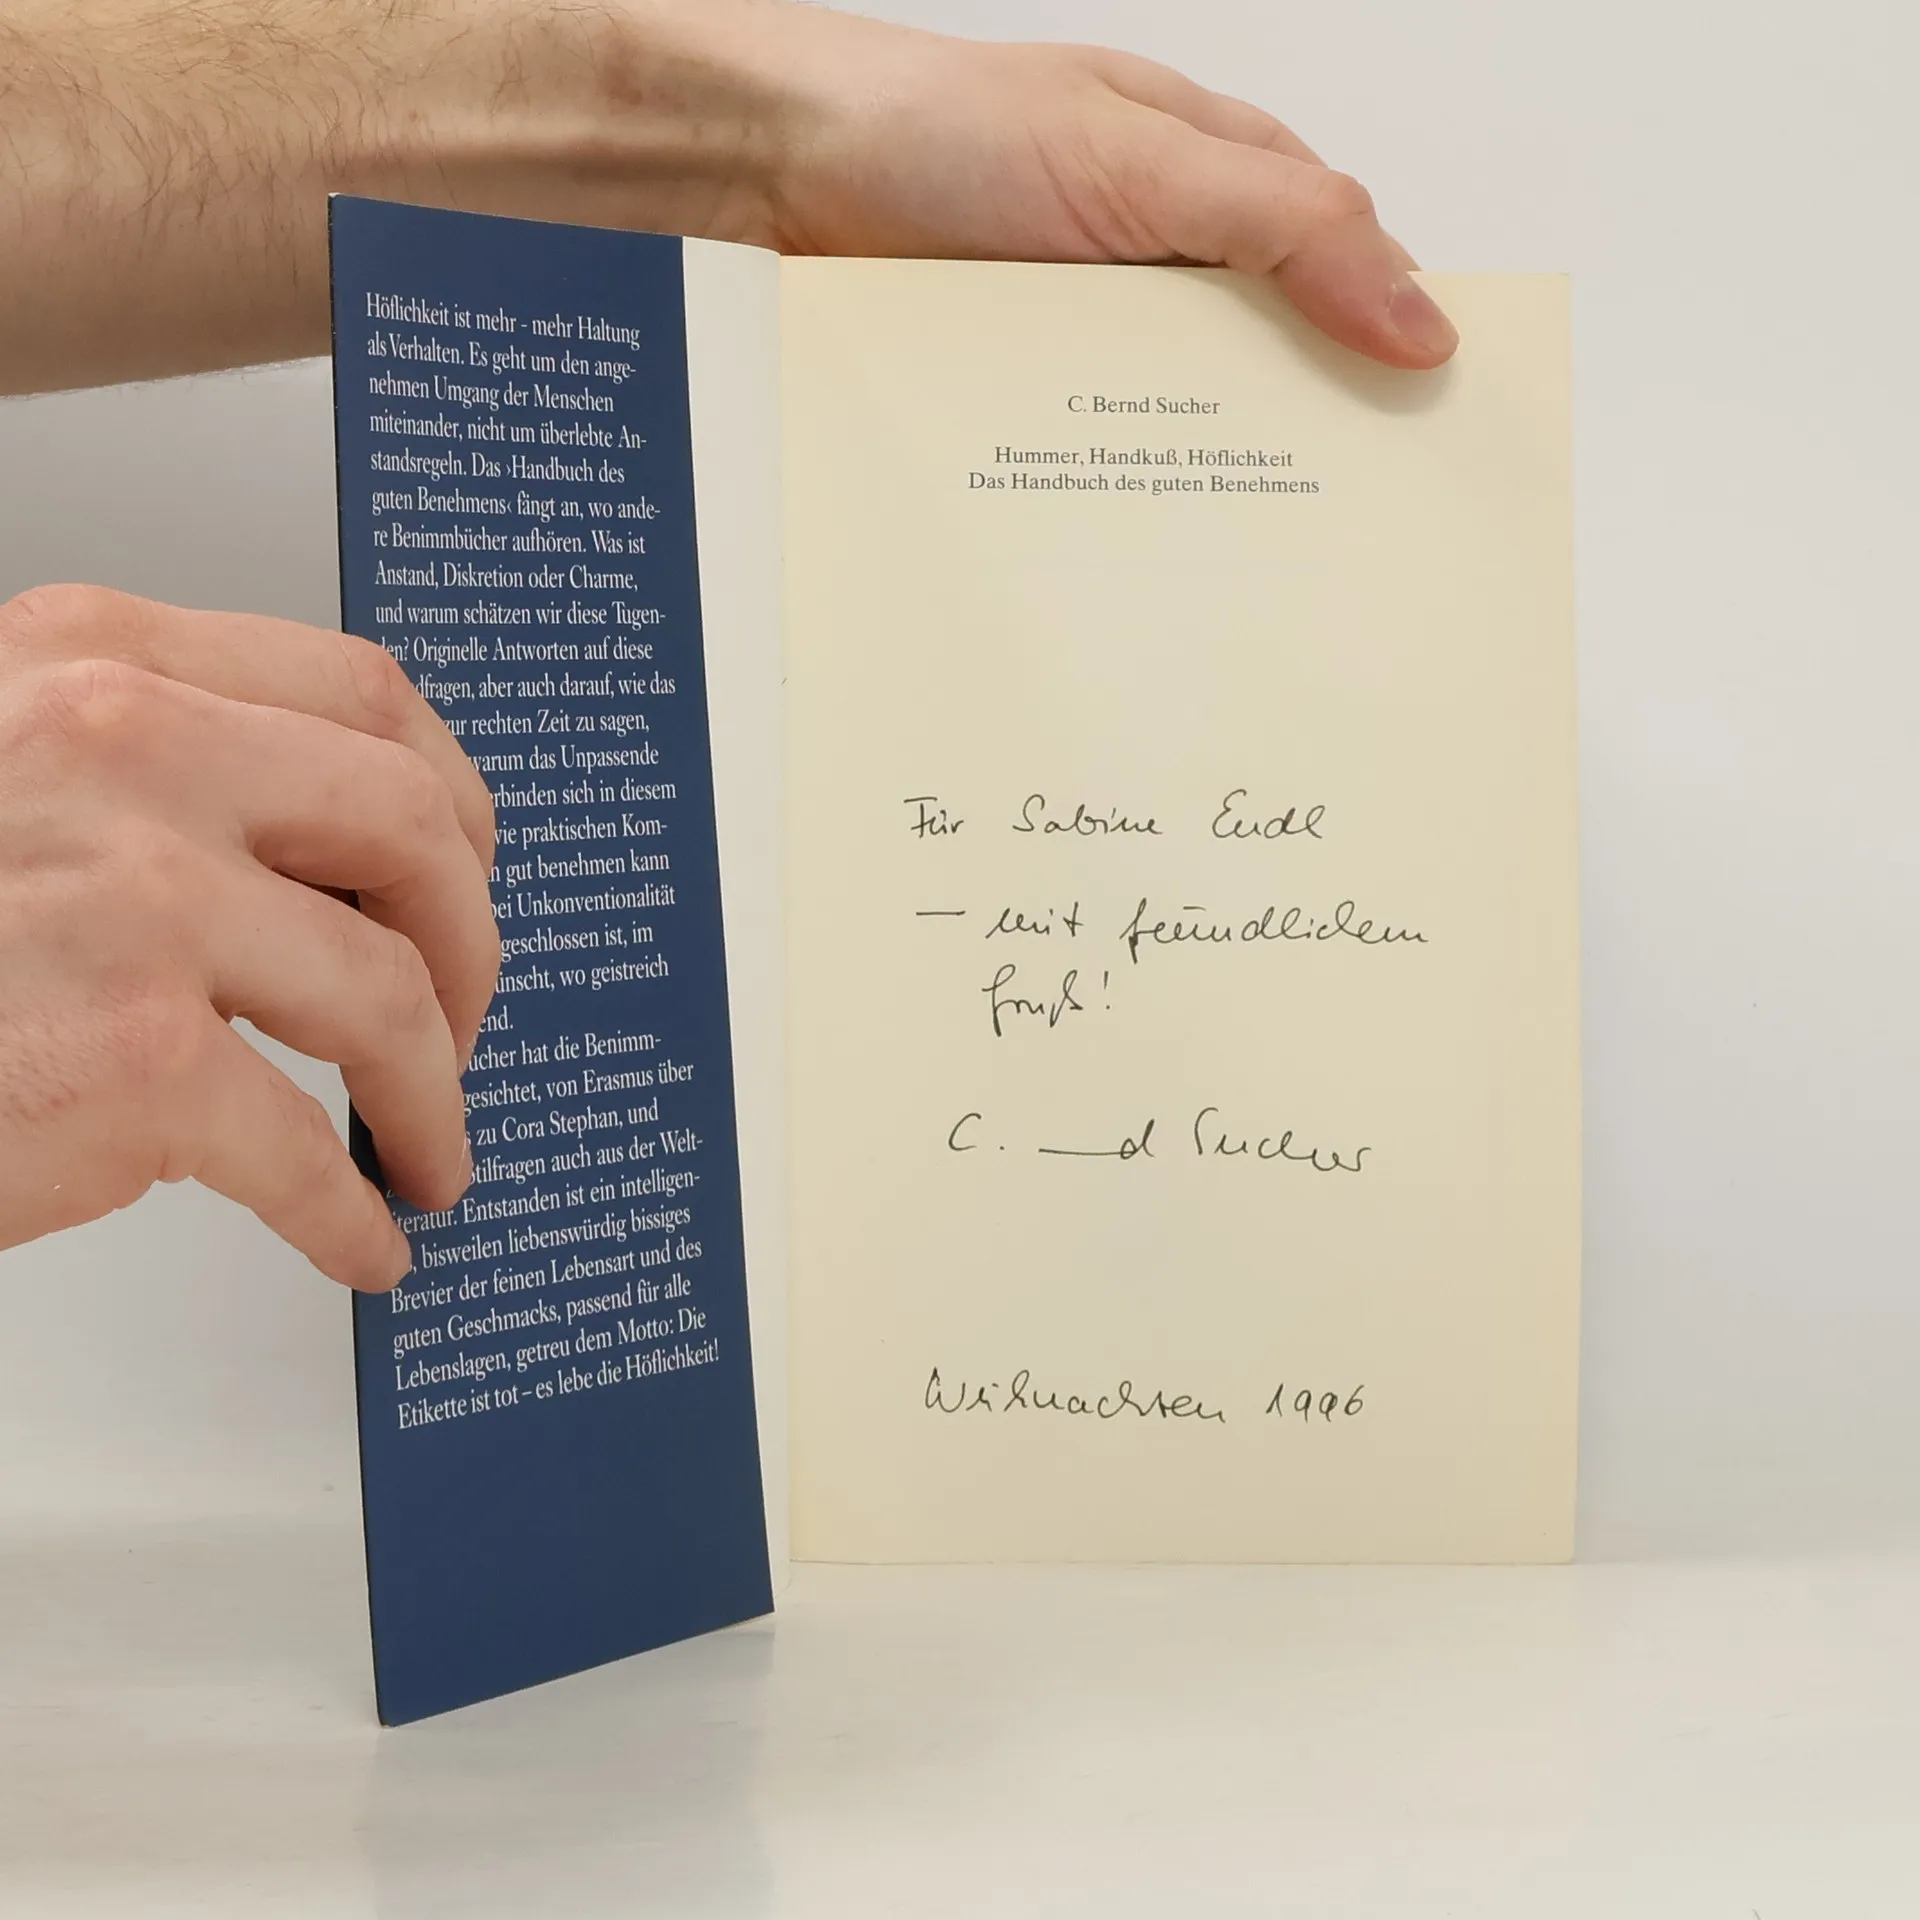 Höflichkeit ist mehr - mehr Haltung
als Verhalten. Es geht um den ange-
nehmen Umgang der Menschen
miteinander, nicht um überlebte An-
standsregeln. Das ›Handbuch des
guten Benehmens‹ fängt an, wo ande-
re Benimmbücher aufhören. Was ist
Anstand, Diskretion oder Charme,
und warum schätzen wir diese Tugen-
Originelle Antworten auf diese
aber auch darauf, wie das
rechten Zeit zu sagen,
das Unpassende
sich in diesem
praktischen Kom-
gut benehmen kann
Unkonventionalität
geschlossen ist, im
wo geistreich
hat die Benimm-
gesichtet, von Erasmus über
zu Cora Stephan, und
auch aus der Welt-
Entstanden ist ein intelligen-
bisweilen liebenswürdig bissiges
Brevier der feinen Lebensart und des
guten Geschmacks, passend für alle
Lebenslagen, getreu dem Motto: Die
Etikette ist tot – es lebe die Höflichkeit!
C. Bernd Sucher
Hummer, Handkuß, Höflichkeit
Das Handbuch des guten Benehmens
Für Sabine Endl
— mit freundlichem
Gruß!
C. Sucher
Weihnachten 1996